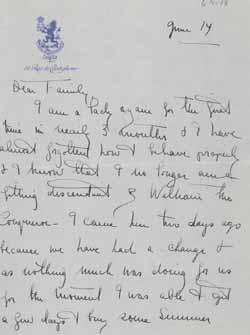 June 14
Dear Family
I am a lady again for the first
time in nearly 3 months & I have
almost forgotten how to behave properly
& I know that I no longer am a
fitting descendant of William the
Conqueror - I came here two days ago
because we have had a change &
as nothing much was doing for us
for the moment I was able to get
a few days & buy some summer